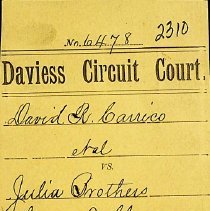 No. 6478 2310
Daviess Circuit Court.
David R. Carrico
et al
vs.
Julia Brothers